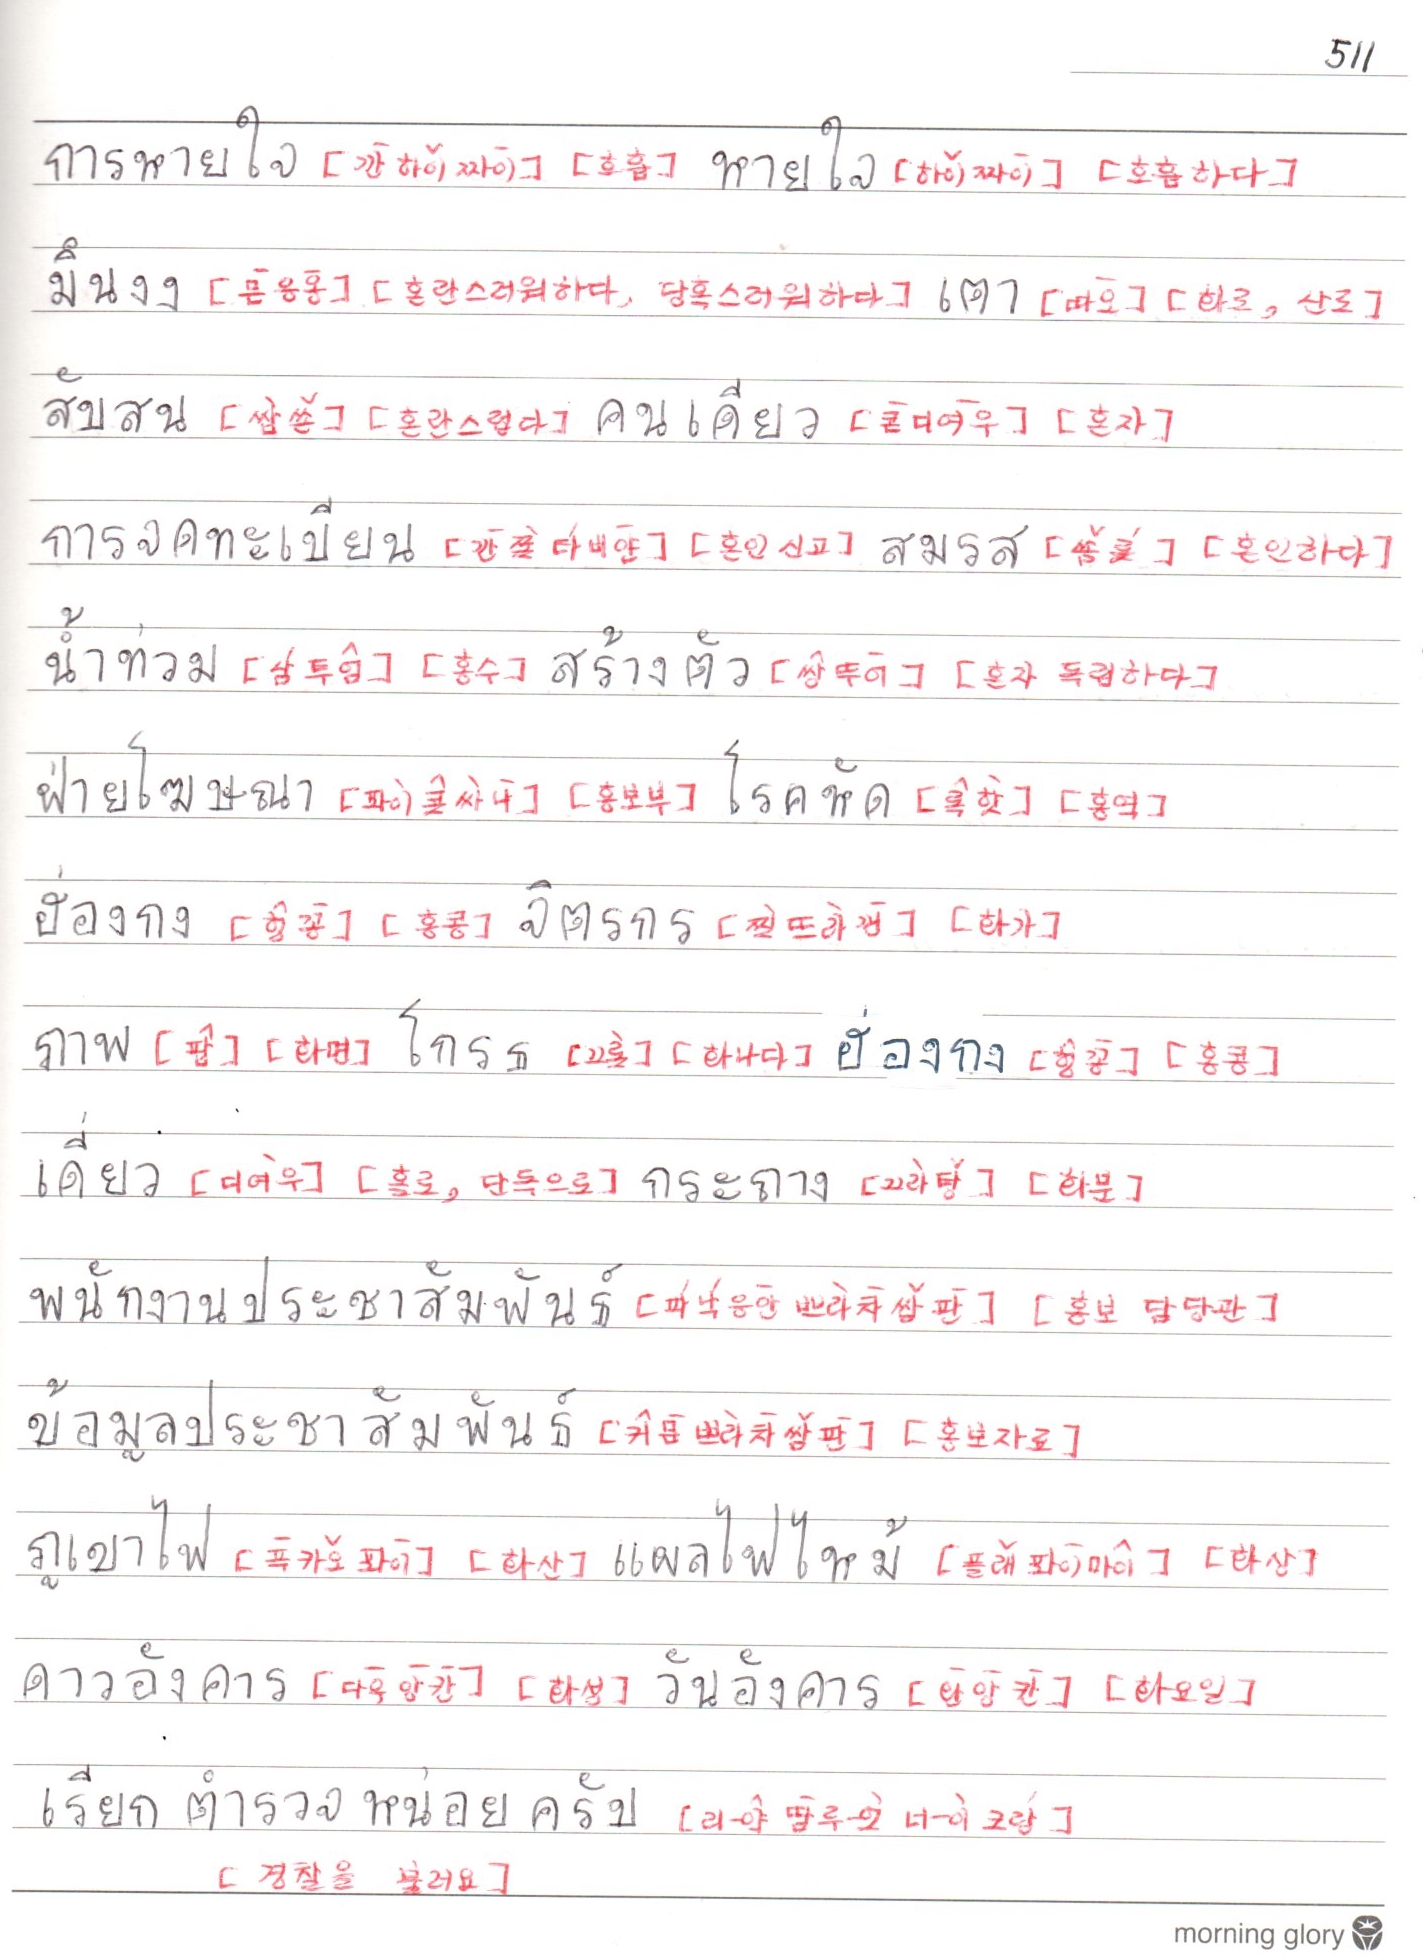 511
การหายใจ [깐하이짜이] [호흡] หายใจ [하이짜이] [호흡하다]
มึนงง [믄응옹] [혼란스러워하다, 당혹스러워하다] เตา [따오] [화로, 산로]
สับสน [쌉쏜] [혼란스럽다] คนเดียว [콘디여우] [혼자]
การจดทะเบียน [깐쫃타비안] [혼인신고] สมรส [쏨롯] [혼인하다]
น้ำท่วม [남투엄] [홍수] สร้างตัว [쌍뚜어] [혼자 독립하다]
ฝ่ายโฆษณา [퐈이콛싸나] [홍보부] โรคหัด [록핫] [홍역]
ฮ่องกง [헝꽁] [홍콩] จิตรกร [찓뜨라껀] [화가]
ภาพ [팝] [화면] โกรธ [끄롣] [화나다] ฮ่องกง [헝꽁] [홍콩]
เดี่ยว [디여우] [홀로, 단독으로] กระถาง [끄라탕] [화분]
พนักงานประชาสัมพันธ์ [파낙응안쁘라차쌈판] [홍보 담당관]
ข้อมูลประชาสัมพันธ์ [커문쁘라차쌈판] [홍보자료]
ภูเขาไฟ [푸카오퐈이] [화산] แผลไฟไหม้ [플래퐈이마이] [화상]
ดาวอังคาร [다우앙칸] [화성] วันอังคาร [완앙칸] [화요일]
เรียก ตำรวจ หน่อย ครับ [리-약 땀루-엇 너-이 크랍]
[경찰을 불러요]
morning glory